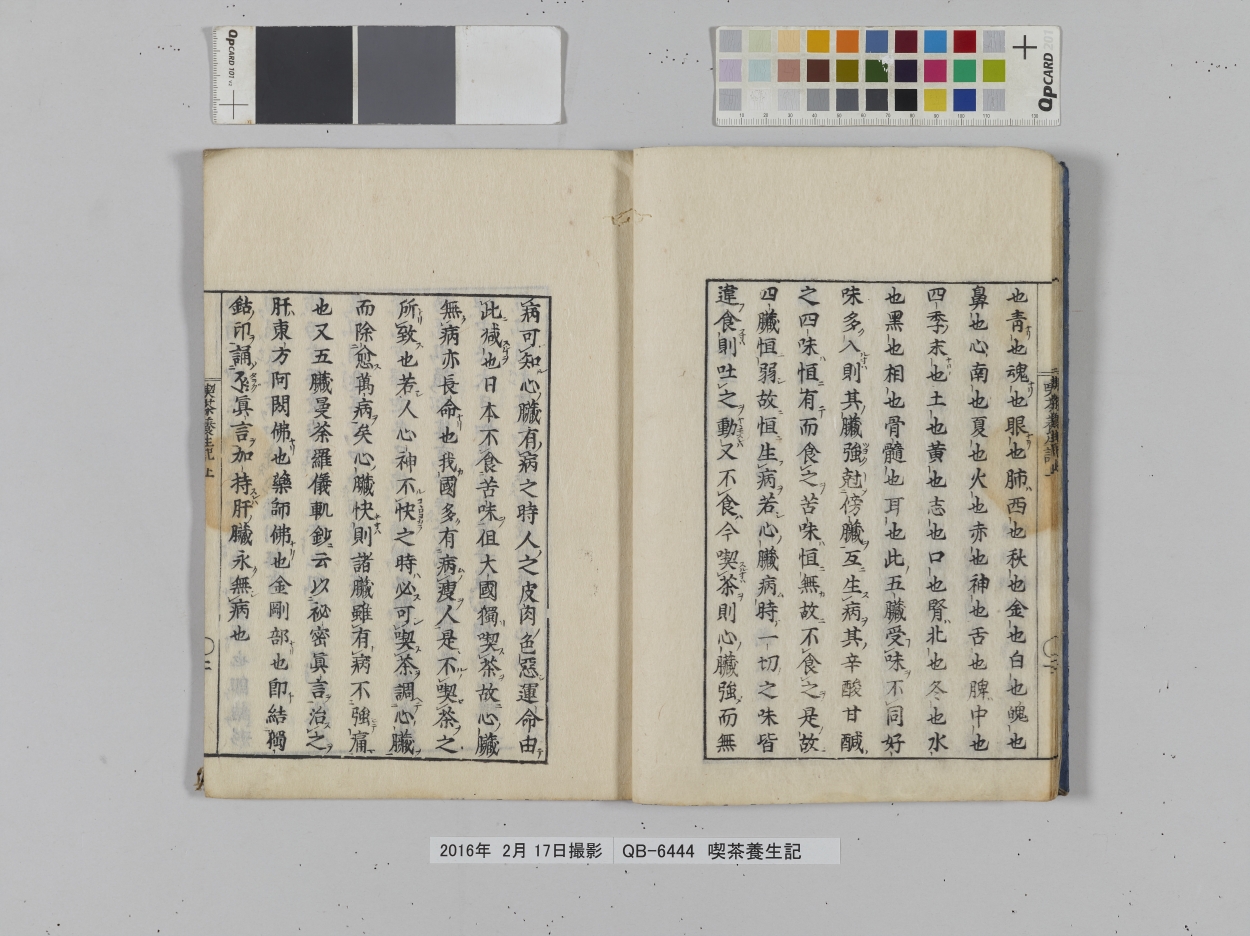 也青也魂也眼也肺西也秋也金也白也魄也
鼻也心南也夏也火也赤也神也舌也脾中也
四季末也土也黄也志也口也腎北也冬也水
也黑也相也骨髓也耳也此五臟受味不同好
味多入則其臟強尅傍臟互生病其辛酸甘醎
之四味恒有而食之苦味恒無故不食之是故
四臟恒弱故恒生病若心臟病時一切之味皆
違食則吐之動又不食今喫茶則心臟強而無
病可知心臟有病之時人之皮肉色惡運命由
此减也日本不食苦味但大國獨喫茶故心臟
無病亦長命也我國多有病瘦人是不喫茶之
所致也若人心神不快之時必可喫茶調心臟
而除愈萬病矣心臟快則諸臟雖有病不強痛
也又五臟曼茶羅儀軌鈔云以祕密眞言治之
肝東方阿閦佛也藥師佛也金剛部也卽結獨
鈷印誦眞言加持肝臟永無病也
喫茶養生記 上
QPCARD 101
QPCARD 201
2016年 2月 17日撮影 QB-6444 喫茶養生記